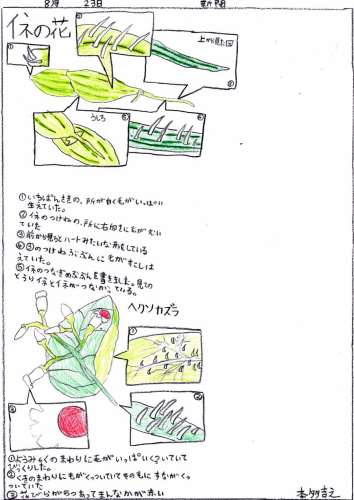 8月 23日
新聞
イネの花
上から見た図
うしろ
①いちばんさきの、所が白く毛がいっぱい
生えていた。
②イネのつけねの、所に右向きに毛がむい
ていた
③前から見るとハートみたいな形をしている
④③のつけねぶぶんに毛がすこしは
えていた。
⑤イネのつなぎめぶぶんを書きました。見ての
とうりイネとイネがつながっている。
ヘクソカズラ
①ようみゃくのまわりに毛がいっぱいくっついていて
びっくりした。
②くきのまわりに毛がくっついていてその毛にすながくっ
ついていた
③花びらが
あってまんなかが赤い